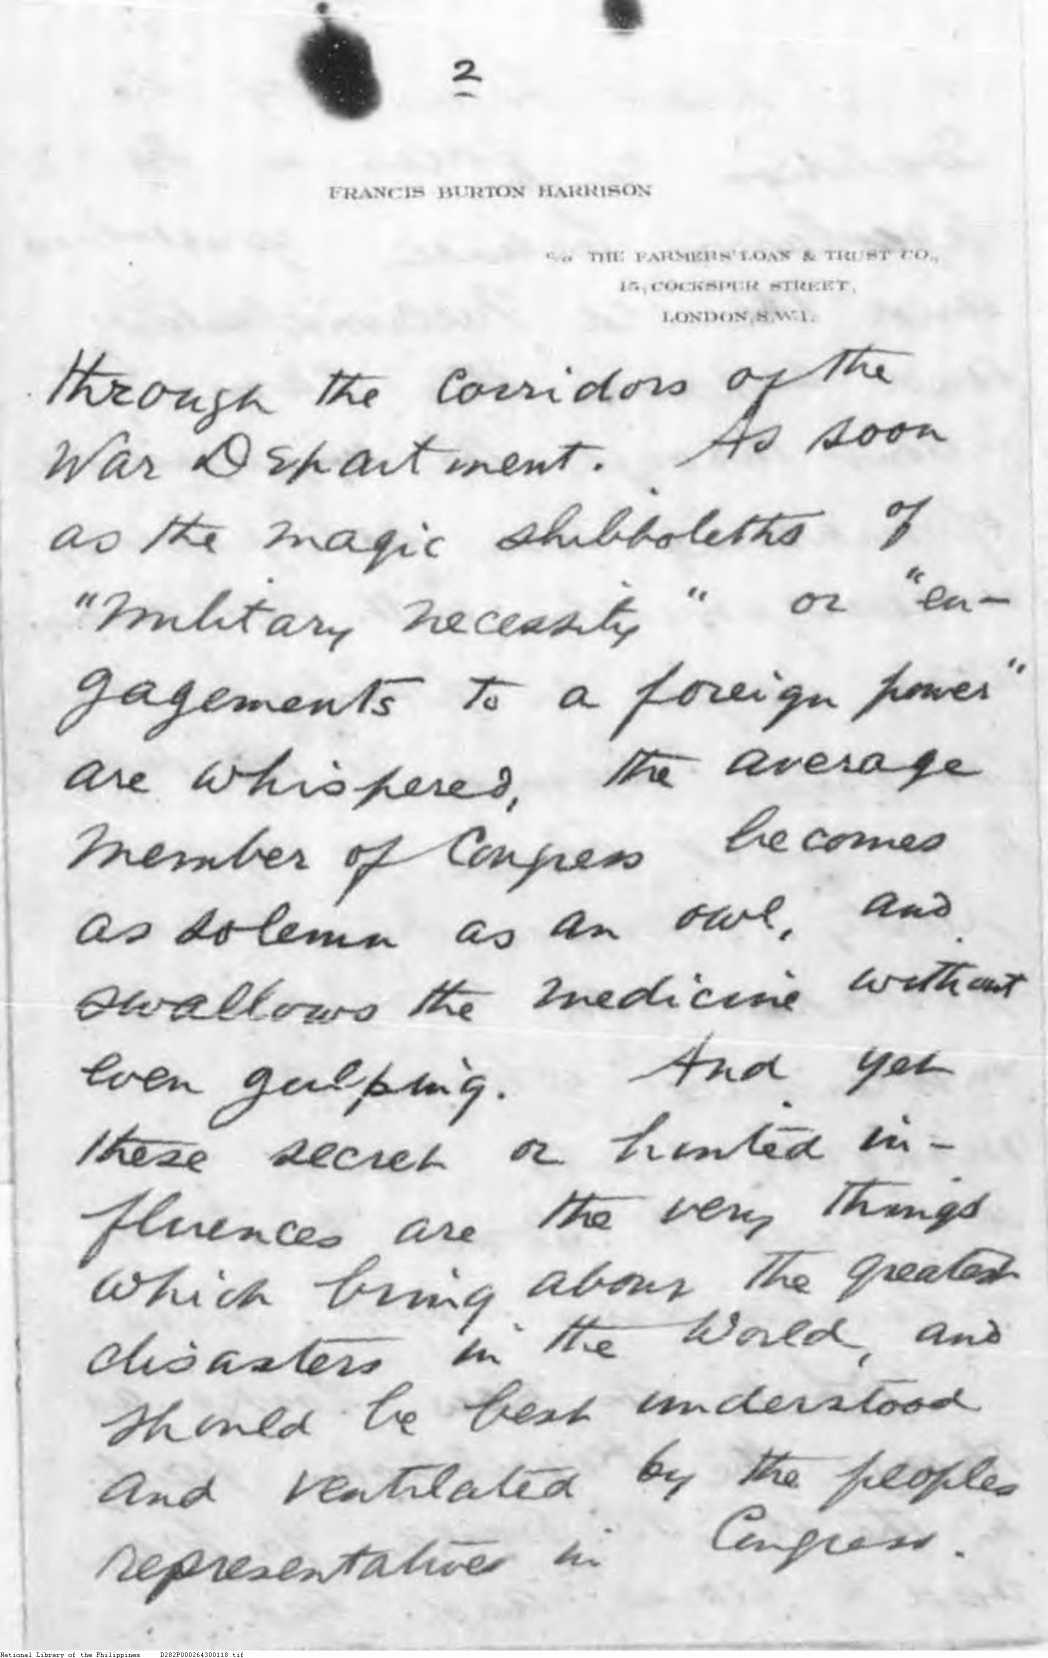 2
FRANCIS BURTON HARRISON
c/o THE FARMERS' LOAN & TRUST CO.,
15, COCKSPUR STREET,
LONDON, S.W.1.
through the corridors of the
War Department. As soon
as the magic shibboleths of
"military necessity" or "en-
gagements to a foreign power"
are whispered, the average
member of Congress becomes
as solemn as an owl, and
swallows the medicine without
even gulping. And yet
these secret or hinted in-
fluences are the very things
which bring about the greatest
disasters in the world, and
should be best understood
and ventilated by the peoples
representatives in Congress.
National Library of the Philippines D282P000264300118.tif